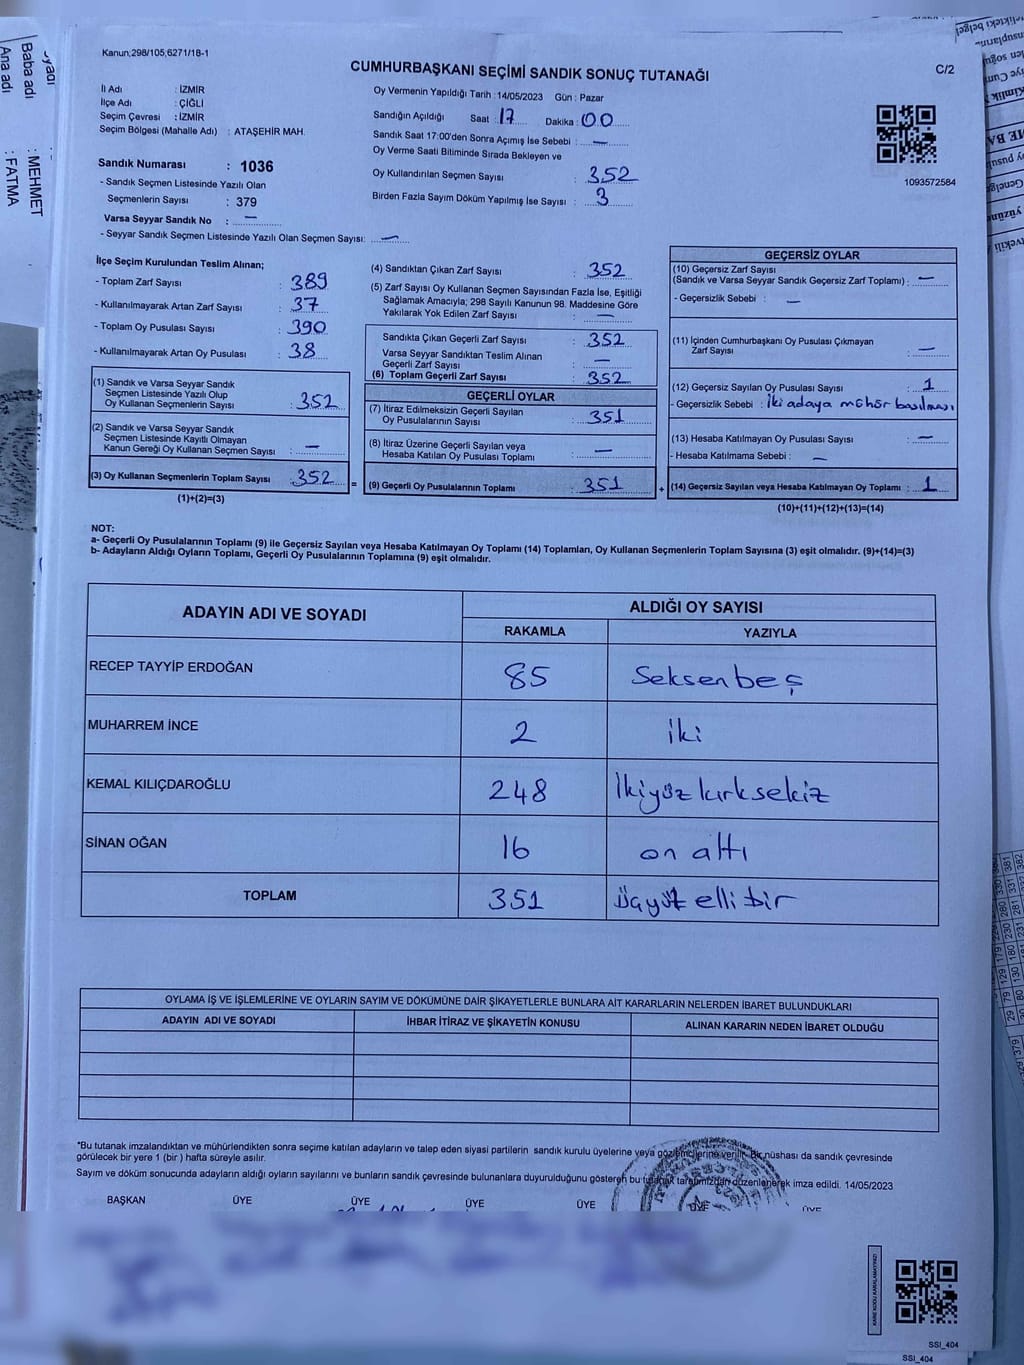 Kanun;298/105;6271/18-1
CUMHURBAŞKANI SEÇİMİ SANDIK SONUÇ TUTANAĞI
C/2
İl Adı : İZMİR
İlçe Adı : ÇİĞLİ
Seçim Çevresi : İZMİR
Seçim Bölgesi (Mahalle Adı) : ATAŞEHİR MAH.
Sandık Numarası : 1036
- Sandık Seçmen Listesinde Yazılı Olan
Seçmenlerin Sayısı : 379
Varsa Seyyar Sandık No : —
- Seyyar Sandık Seçmen Listesinde Yazılı Olan Seçmen Sayısı: —
Oy Vermenin Yapıldığı Tarih : 14/05/2023 Gün : Pazar
Sandığın Açıldığı Saat : 17 Dakika : 00
Sandık Saat 17:00'den Sonra Açımış İse Sebebi : —
Oy Verme Saati Bitiminde Sırada Bekleyen ve
Oy Kullandırılan Seçmen Sayısı : 352
Birden Fazla Sayım Döküm Yapılmış İse Sayısı : 3
1093572584
İlçe Seçim Kurulundan Teslim Alınan;
- Toplam Zarf Sayısı : 389
- Kullanılmayarak Artan Zarf Sayısı : 37
- Toplam Oy Pusulası Sayısı : 390
- Kullanılmayarak Artan Oy Pusulası : 38
(1) Sandık ve Varsa Seyyar Sandık
Seçmen Listesinde Yazılı Olup
Oy Kullanan Seçmenlerin Sayısı : 352
(2) Sandık ve Varsa Seyyar Sandık
Seçmen Listesinde Kayıtlı Olmayan
Kanun Gereği Oy Kullanan Seçmen Sayısı : —
(3) Oy Kullanan Seçmenlerin Toplam Sayısı : 352
(1)+(2)=(3)
(4) Sandıktan Çıkan Zarf Sayısı : 352
(5) Zarf Sayısı Oy Kullanan Seçmen Sayısından Fazla İse, Eşitliği
Sağlamak Amacıyla; 298 Sayılı Kanunun 98. Maddesine Göre
Yakılarak Yok Edilen Zarf Sayısı : —
Sandıkta Çıkan Geçerli Zarf Sayısı : 352
Varsa Seyyar Sandıktan Teslim Alınan
Geçerli Zarf Sayısı : —
(6) Toplam Geçerli Zarf Sayısı : 352
GEÇERLİ OYLAR
(7) İtiraz Edilmeksizin Geçerli Sayılan
Oy Pusulalarının Sayısı : 351
(8) İtiraz Üzerine Geçerli Sayılan veya
Hesaba Katılan Oy Pusulası Toplamı : —
(9) Geçerli Oy Pusulalarının Toplamı : 351
GEÇERSİZ OYLAR
(10) Geçersiz Zarf Sayısı
(Sandık ve Varsa Seyyar Sandık Geçersiz Zarf Toplamı) : —
- Geçersizlik Sebebi : —
(11) İçinden Cumhurbaşkanı Oy Pusulası Çıkmayan
Zarf Sayısı : —
(12) Geçersiz Sayılan Oy Pusulası Sayısı : 1
- Geçersizlik Sebebi : İki adaya mühür basılması
(13) Hesaba Katılmayan Oy Pusulası Sayısı : —
- Hesaba Katılmama Sebebi : —
(14) Geçersiz Sayılan veya Hesaba Katılmayan Oy Toplamı : 1
(10)+(11)+(12)+(13)=(14)
NOT:
a- Geçerli Oy Pusulalarının Toplamı (9) ile Geçersiz Sayılan veya Hesaba Katılmayan Oy Toplamı (14) Toplamları, Oy Kullanan Seçmenlerin Toplam Sayısına (3) eşit olmalıdır. (9)+(14)=(3)
b- Adayların Aldığı Oyların Toplamı, Geçerli Oy Pusulalarının Toplamına (9) eşit olmalıdır.
ADAYIN ADI VE SOYADI ALDIĞI OY SAYISI
RAKAMLA YAZIYLA
RECEP TAYYİP ERDOĞAN 85 Seksen beş
MUHARREM İNCE 2 iki
KEMAL KILIÇDAROĞLU 248 İkiyüz kırk sekiz
SİNAN OĞAN 16 on altı
TOPLAM 351 üçyüz elli bir
OYLAMA İŞ VE İŞLEMLERİNE VE OYLARIN SAYIM VE DÖKÜMÜNE DAİR ŞİKAYETLERLE BUNLARA AİT KARARLARIN NELERDEN İBARET BULUNDUKLARI
ADAYIN ADI VE SOYADI İHBAR İTİRAZ VE ŞİKAYETİN KONUSU ALINAN KARARIN NEDEN İBARET OLDUĞU
*Bu tutanak imzalandıktan ve mühürlendikten sonra seçime katılan adayların ve talep eden siyasi partilerin sandık kurulu üyelerine veya gözlemcilerine verilir. Bir nüshası da sandık çevresinde
görülecek bir yere 1 (bir ) hafta süreyle asılır.
Sayım ve döküm sonucunda adayların aldığı oyların sayılarını ve bunların sandık çevresinde bulunanlara duyurulduğunu gösteren bu tutanak tarafımızdan düzenlenerek imza edildi. 14/05/2023
BAŞKAN ÜYE ÜYE ÜYE ÜYE ÜYE ÜYE
SSI_404
SSI_404
Baba adı : MEHMET
Ana adı : FATMA